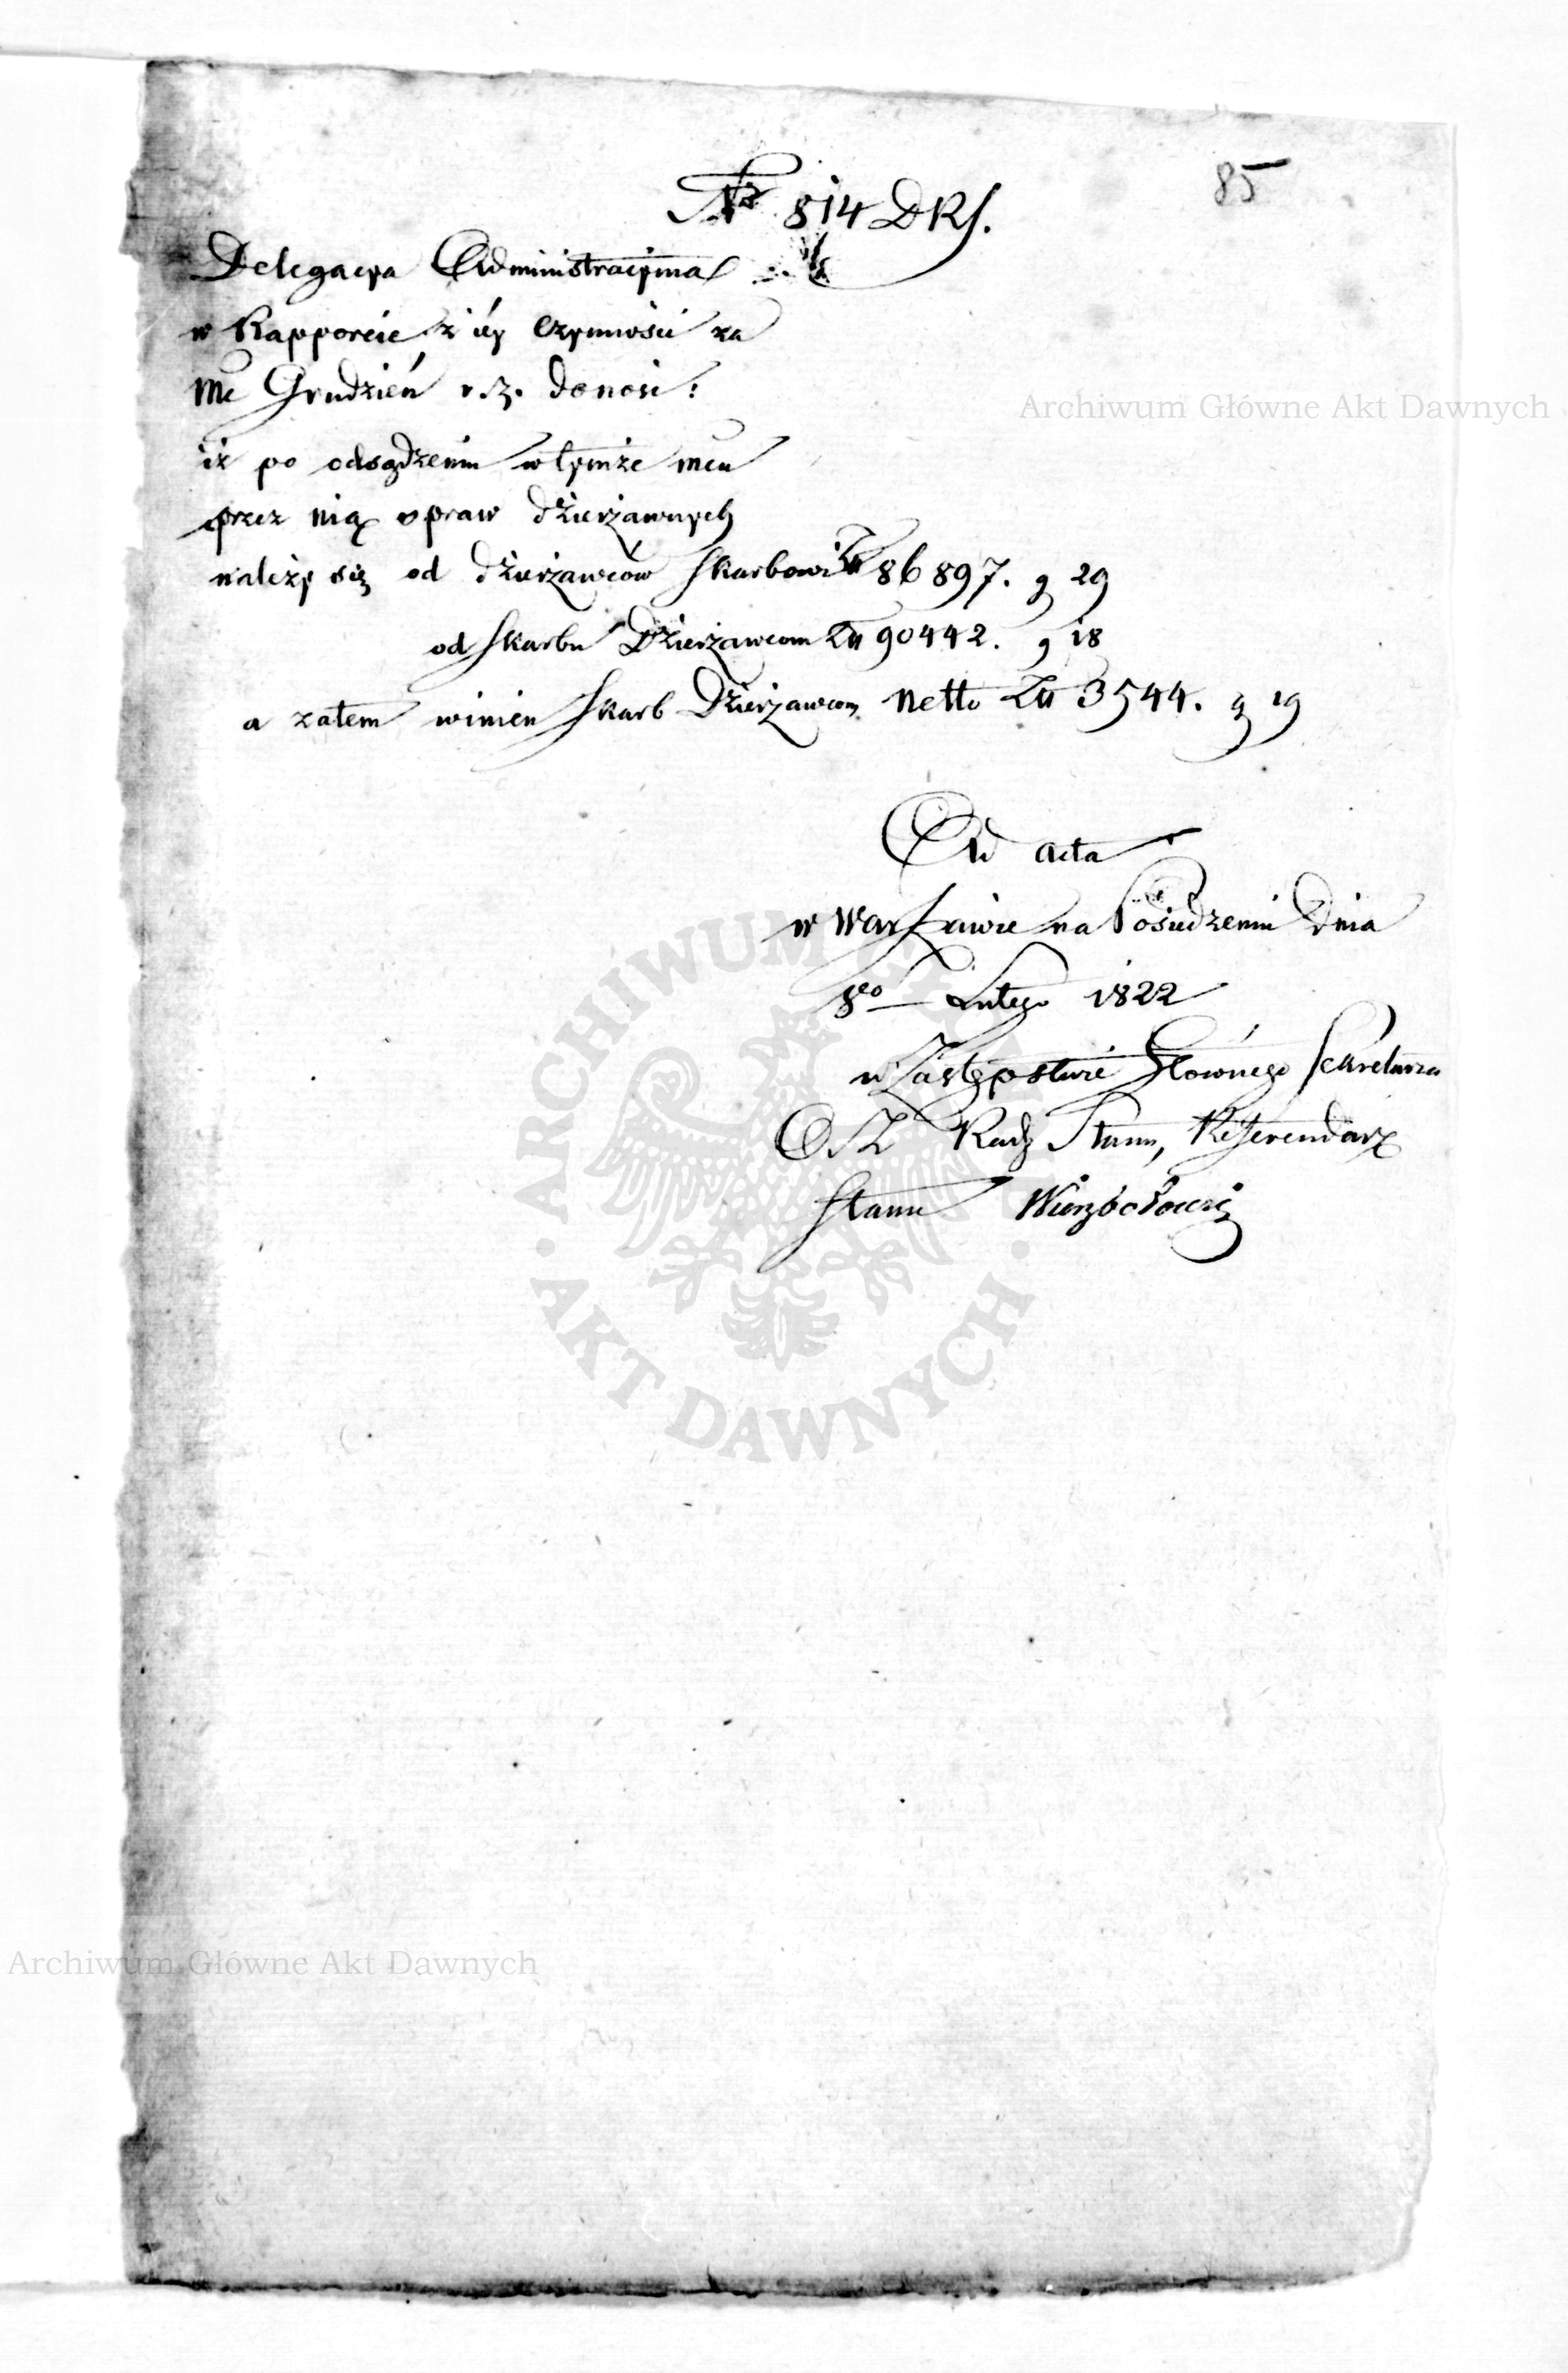 85
Nr 814 DRS.
Delegacya Administracyina
w Rapporcie z iéy Czynności za
Mc Grudzień r. z. donosi:
iż po odsądzeniu w tymże mcu
przez nią spraw dzierżawnych
należy się od dzierżawców Skarbowi Zł 86897. g 29
od Skarbu Dzierżawcom Zł 90442. g 18
a zatem winien Skarb Dzierżawcom Netto Zł 3544. g 19
Ad acta
w Warszawie na Posiedzeniu Dnia
8go Lutego 1822
w Zastępstwie Głównego Sekretarza
Rady Stanu, Referendarz
Stanu Wierzbołowicz
Archiwum Główne Akt Dawnych
ARCHIWUM GŁÓWNE · AKT DAWNYCH ·
Archiwum Główne Akt Dawnych